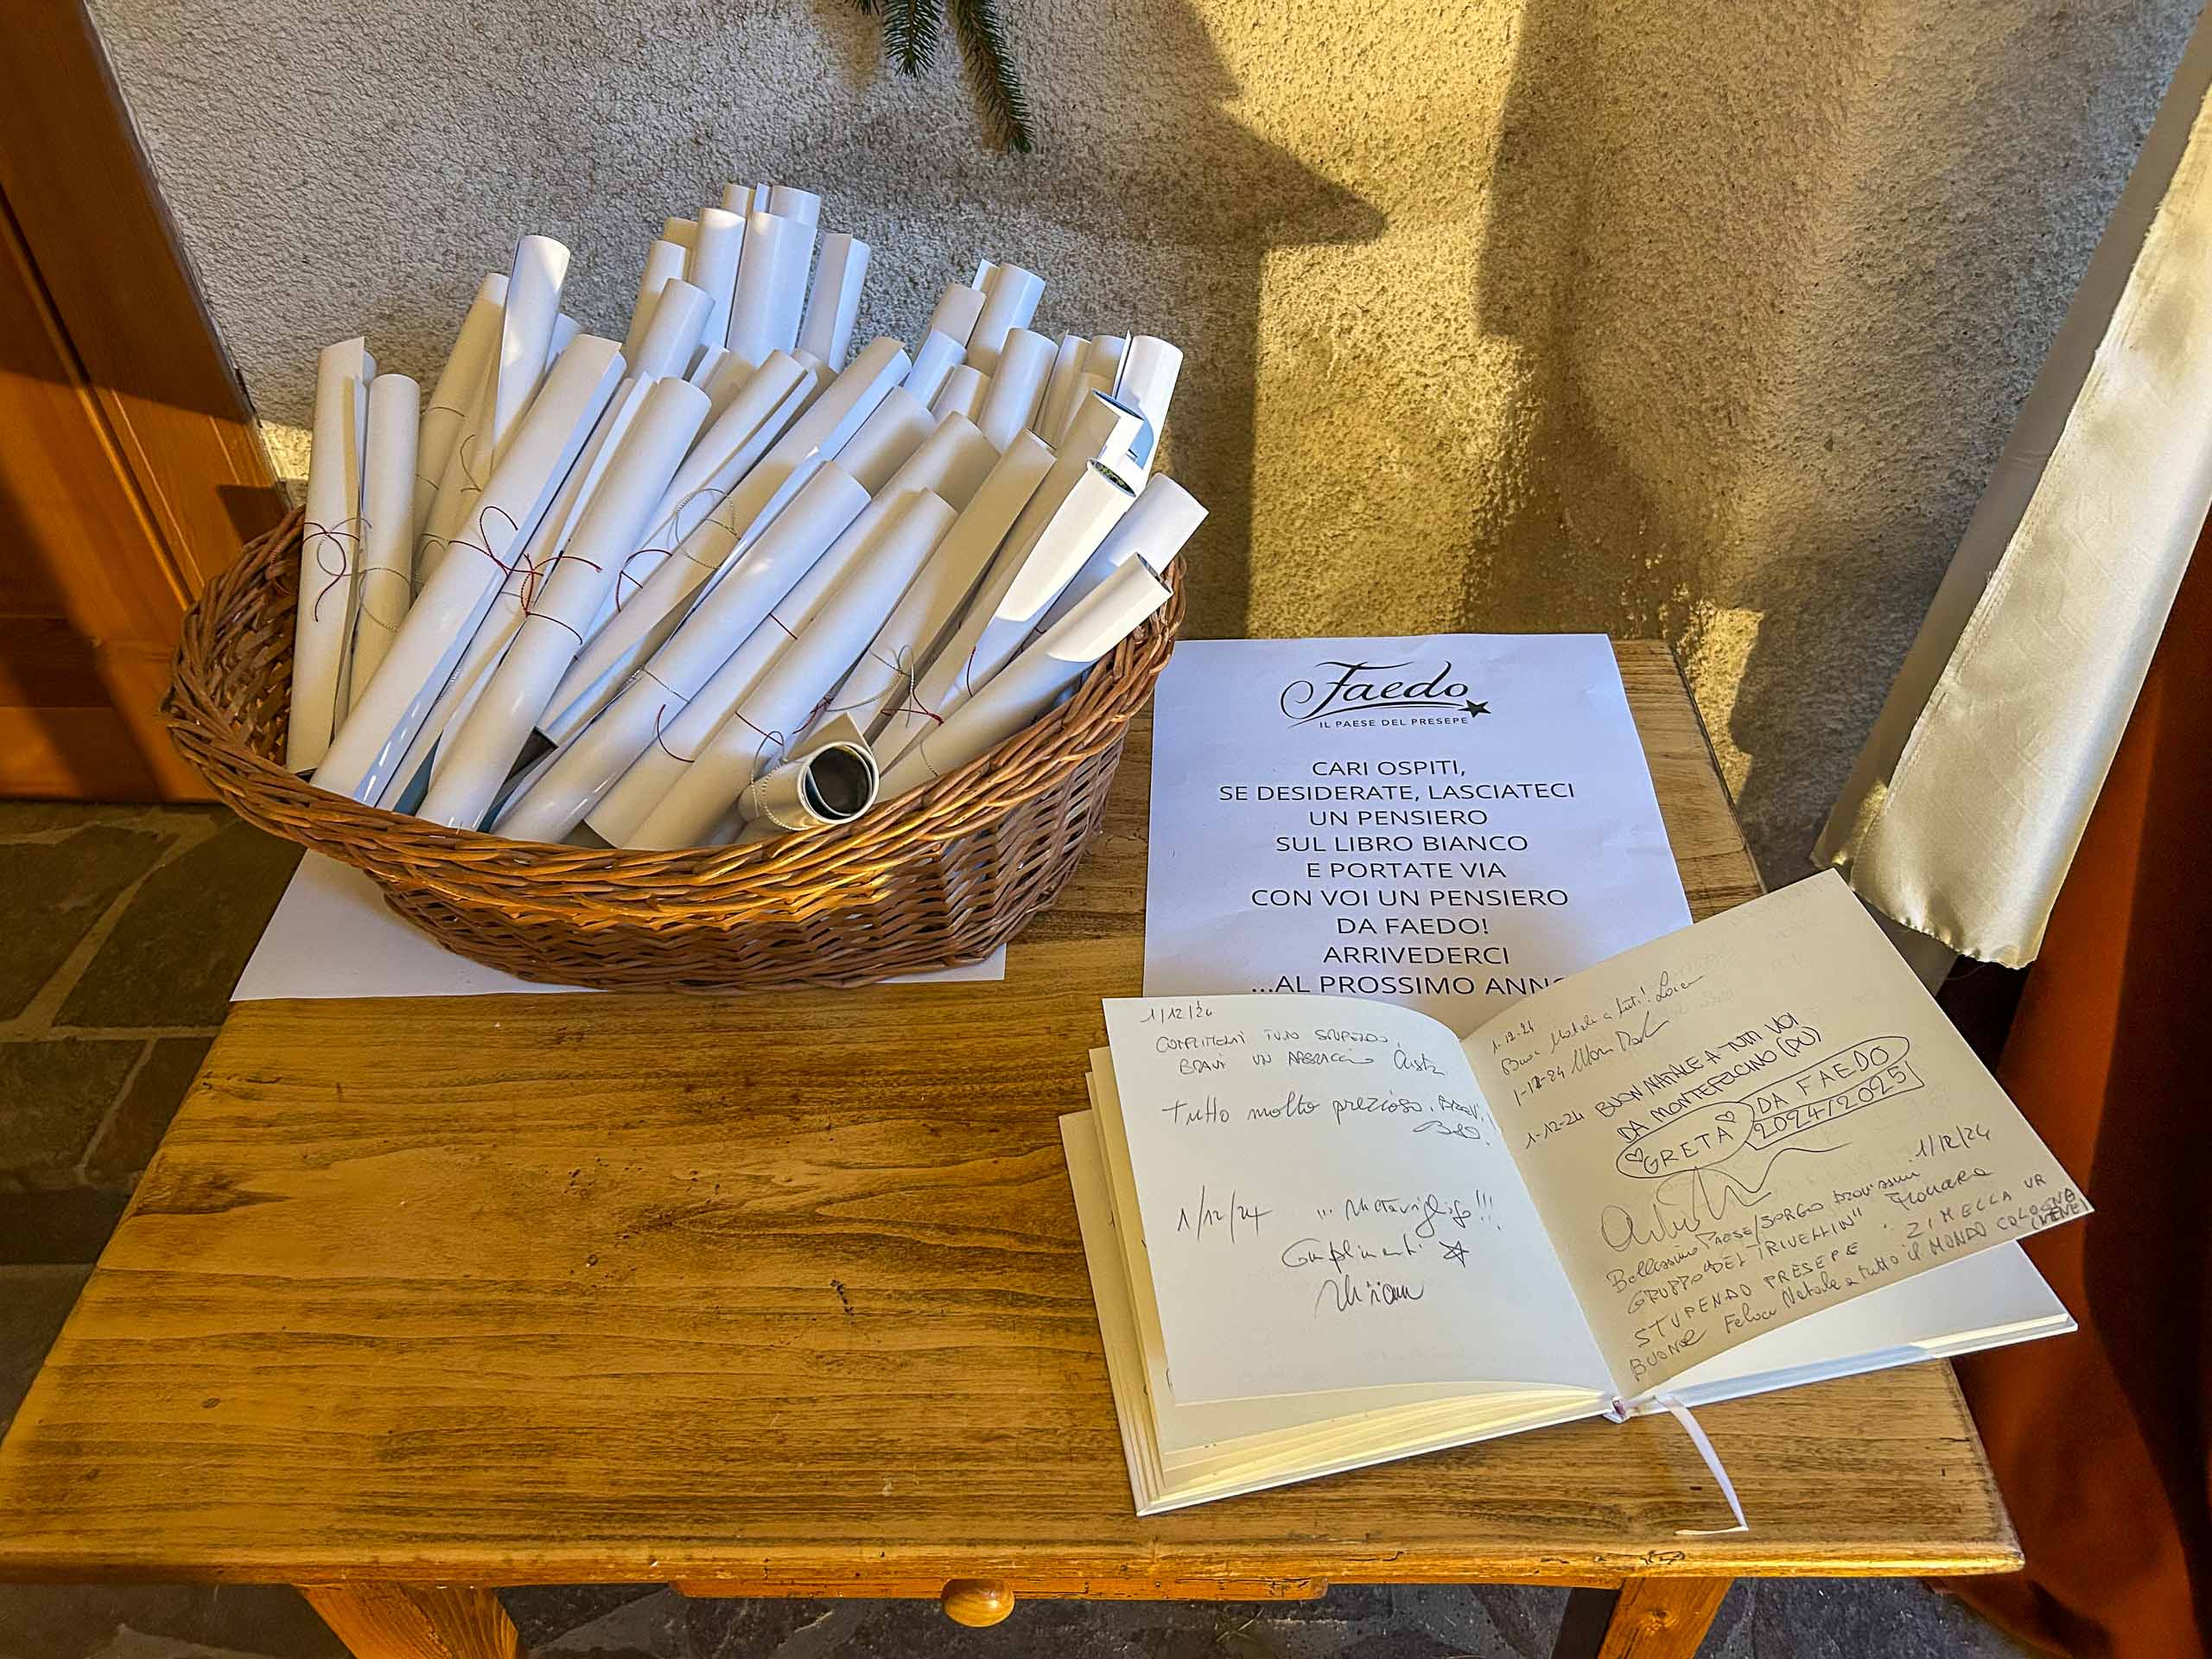 Faedo
IL PAESE DEL PRESEPE
CARI OSPITI,
SE DESIDERATE, LASCIATECI
UN PENSIERO
SUL LIBRO BIANCO
E PORTATE VIA
CON VOI UN PENSIERO
DA FAEDO!
ARRIVEDERCI
...AL PROSSIMO ANNO
1/12/24
COMPLIMENTI TUTTO STUPENDO,
BRAVI UN ABBRACCIO
Tutto molto prezioso. BRAVI!
1/12/24 "... Meraviglioso!!!
Complimenti
Miriam
1-12-24
Buon Natale a tutti!
1-12-24
1-12-24 BUON NATALE A TUTTI VOI
DA MONTEFELCINO (PU)
GRETA DA FAEDO
2024/2025
1/12/24
Bellissimo PRESE/BORGO bravissimi
GRUPPO "DEI TRIVELLIN"
STUPENDO PRESEPE ZIMELLA VR
BUONE Felice Natale a tutto il MONDO COLOGNA
VENETA